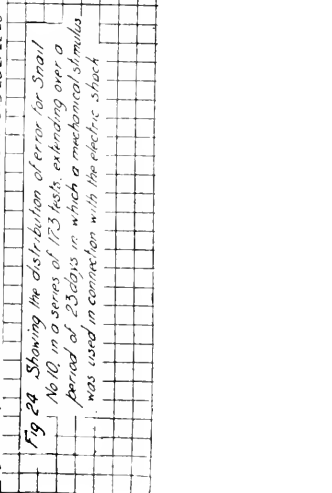 Fig 24 Showing the distribution of error for Snail
No 10. in a series of 173 tests. extending over a
period of 23 days in which a mechanical stimulus
was used in connection with the electric shock